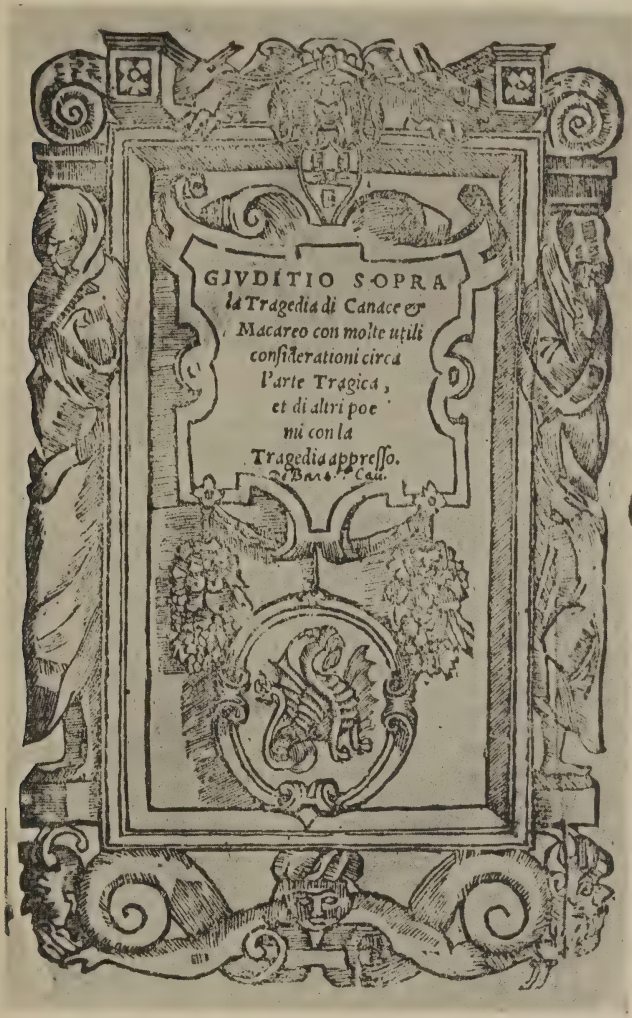 GIVDITIO SOPRA
la Tragedia di Canace &
Macareo con molte utili
considerationi circa
l'arte Tragica,
et di altri poe
mi con la
Tragedia appresso.